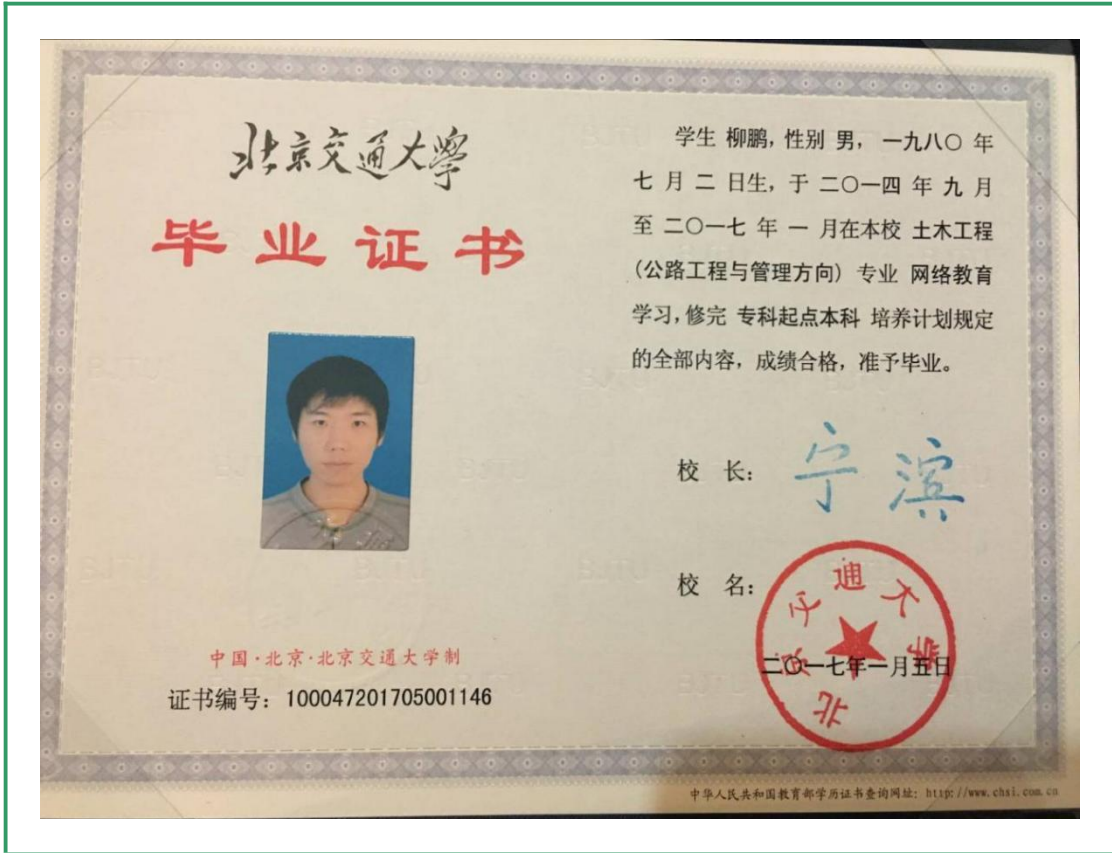 北京交通大學
毕业证书
中国·北京·北京交通大学制
证书编号：100047201705001146
学生 柳鹏，性别 男， 一九八〇 年
七 月 二 日生，于 二〇一四 年 九 月
至 二〇一七 年 一 月在本校 土木工程
(公路工程与管理方向) 专业 网络教育
学习，修完 专科起点本科 培养计划规定
的全部内容，成绩合格，准予毕业。
校 长：宁滨
校 名：
北京交通大学
二〇一七年一月五日
中华人民共和国教育部学历证书查询网址：http://www.chsi.com.cn